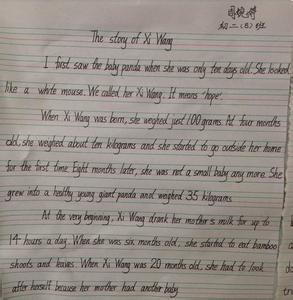 初二(8)班
The story of Xi Wang
I first saw the baby panda when she was only ten days old. She looked
like a white mouse. We called her Xi Wang. It means 'hope'.
When Xi Wang was born, she weighed just 100 grams. At four months
old, she weighed about ten kilograms and she started to go outside her home
for the first time. Eight months later, she was not a small baby any more. She
grew into a healthy young giant panda and weighed 35 kilograms.
At the very beginning, Xi Wang drank her mother's milk for up to
14 hours a day. When she was six months old, she started to eat bamboo
shoots and leaves. When Xi Wang was 20 months old, she had to look
after herself because her mother had another baby.